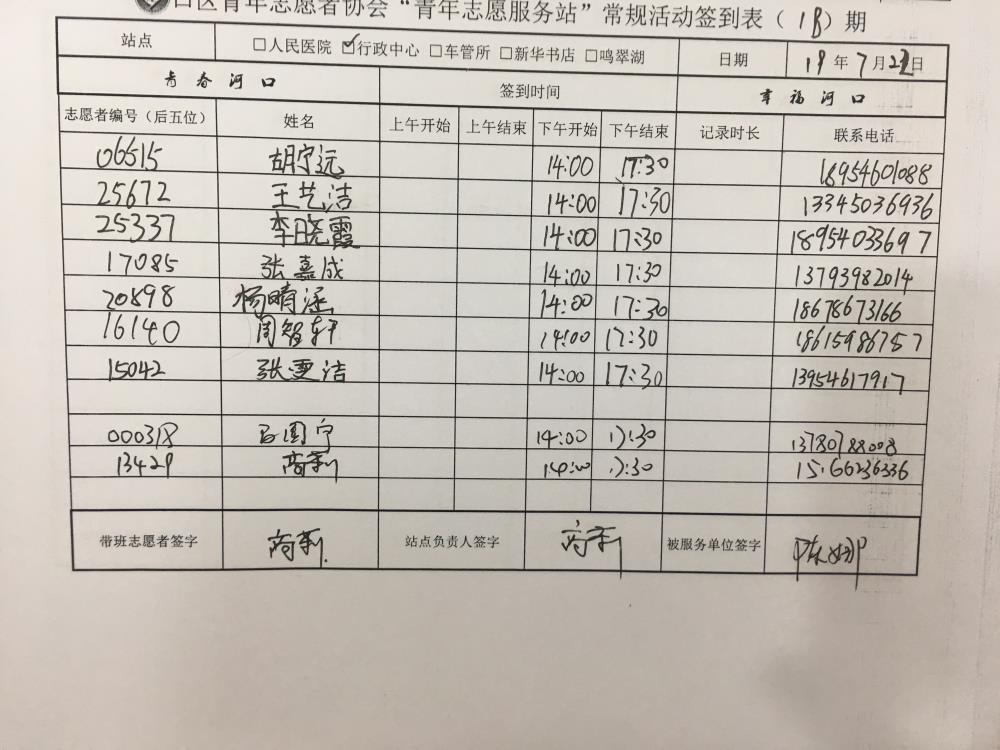 口区青年志愿者协会“青年志愿服务站”常规活动签到表（18）期
站点 □人民医院 ☑行政中心 □车管所 □新华书店 □鸣翠湖 日期 18年7月22日
青春河口 签到时间 幸福河口
志愿者编号（后五位） 姓名 上午开始 上午结束 下午开始 下午结束 记录时长 联系电话
06515 胡宇远 14:00 17:30 18954601088
25672 王艺洁 14:00 17:30 13345036936
25337 李晓霞 14:00 17:30 18954033697
17085 张嘉成 14:00 17:30 13793982014
20898 杨晴涵 14:00 17:30 18678673166
16140 周智轩 14:00 17:30 18615986757
15042 张雯洁 14:00 17:30 13954617917
000318 国宁 14:00 17:30 13780788008
13429 商利 14:00 17:30 15166236336
带班志愿者签字 商利 站点负责人签字 商利 被服务单位签字 陈娜